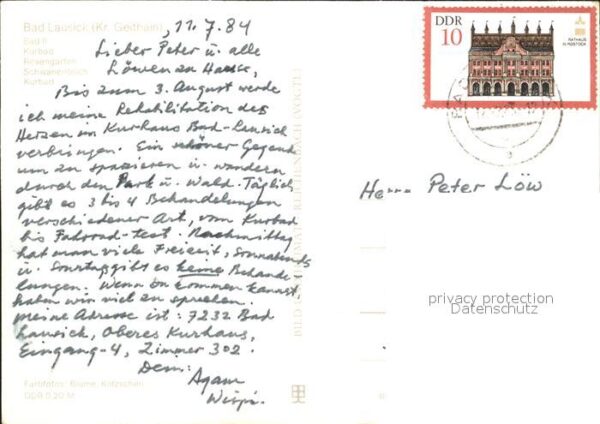 Bad Lausick (Kr. Geithain)
Bad II
Kurbad
Rosengarten
Schwanenteich
Kurbad
11.7.84
Lieber Peter u. alle
Löwen zu Hause,
Bis zum 3. August werde
ich meine Rehabilitation des
Herzen im Kurhaus Bad-Lausick
verbringen. Ein schöner Gegend
um zu spazieren u. wandern
durch den Park u. Wald. Täglich
gibt es 3 bis 4 Behandelungen
verschiedener Art, vom Kurbad
bis Fahrrad-test. Nachmittag
hat man viele Freizeit, Sonnabends
u. Sonntag gibt es keine Behande-
lungen. Wenn du kommen kannst,
haben wir viel zu sprechen.
meine Adresse ist: 7232 Bad
Lausick, Oberes Kurhaus,
Eingang-4, Zimmer 302.
Dein:
Farbfotos: Blume, Kötzschen
DDR 0,20 M
BILD UND HEIMAT REICHENBACH (VOGTL)
DDR
10
RATHAUS
IN ROSTOCK
Herrn Peter Löw
privacy protection
Datenschutz